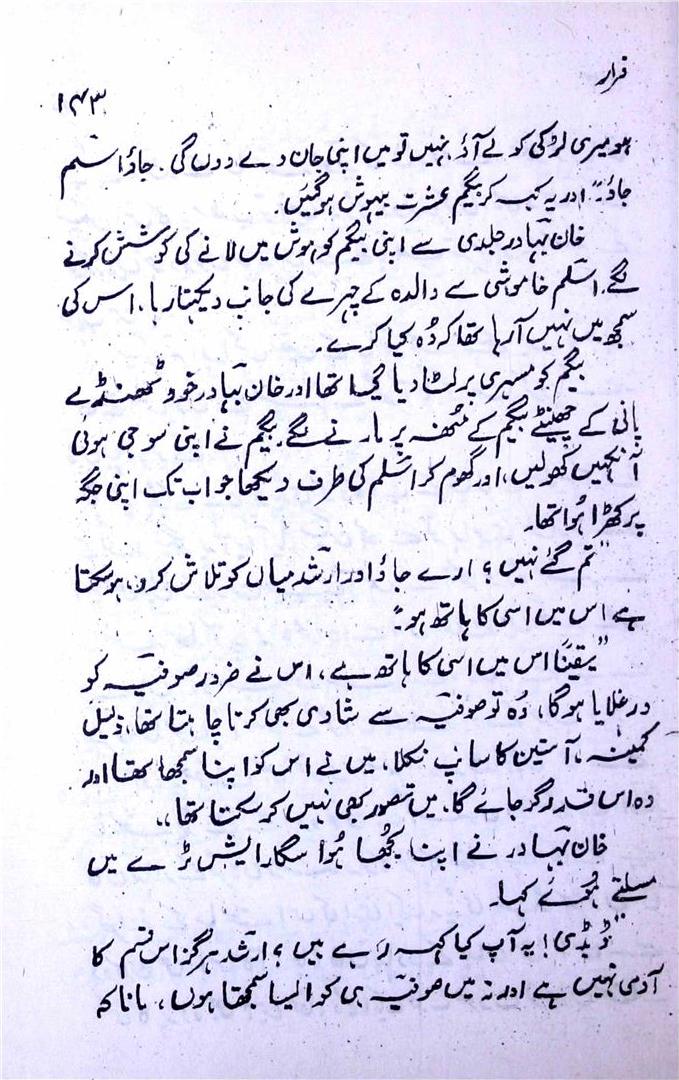 فرار
۱۴۳
ہو میری لڑکی کو لے آؤ نہیں تو میں اپنی جان دے دوں گی۔ جاؤ اسلم
جاؤ۔" اور یہ کہہ کر بیگم عشرت بیہوش ہوگئیں۔
خان بہادر جلدی سے اپنی بیگم کو ہوش میں لانے کی کوشش کرنے
لگے۔ اسلم خاموشی سے والدہ کے چہرے کی جانب دیکھتا رہا، اس کی
سمجھ میں نہیں آرہا تھا کہ وُہ کیا کرے۔
بیگم کو مسہری پر لٹا دیا گیا تھا اور خان بہادر خود ٹھنڈے
پانی کے چھینٹے بیگم کے منُھ پر مارنے لگے۔ بیگم نے اپنی سوجی ہوئی
آنکھیں کھولیں، اور گھوم کر اسلم کی طرف دیکھا جو اب تک اپنی جگہ
پر کھڑا ہُوا تھا۔
"تم گئے نہیں؟ ارے جاؤ اور ارشد میاں کو تلاش کرو، ہوسکتا
ہے اس میں اسی کا ہاتھ ہو۔"
"یقیناً اس میں اسی کا ہاتھ ہے، اس نے ضرور صوفیہ کو
ورغلایا ہوگا، وُہ تو صوفیہ سے شادی بھی کرنا چاہتا تھا، ذلیل
کمینہ، آستین کا سانپ نکلا، میں نے اس کو اپنا سمجھا تھا اور
وہ اس قدر گر جائے گا، میں تصور بھی نہیں کرسکتا تھا،،
خان بہادر نے اپنا بُجھا ہُوا سگار ایش ٹرے میں
مسلتے ہُوئے کہا۔
"ڈیڈی! یہ آپ کیا کہہ رہے ہیں؟ ارشد ہرگز اس قسم کا
آدمی نہیں ہے اور نہ میں صوفیہ ہی کو ایسا سمجھتا ہوں، مانا کہ